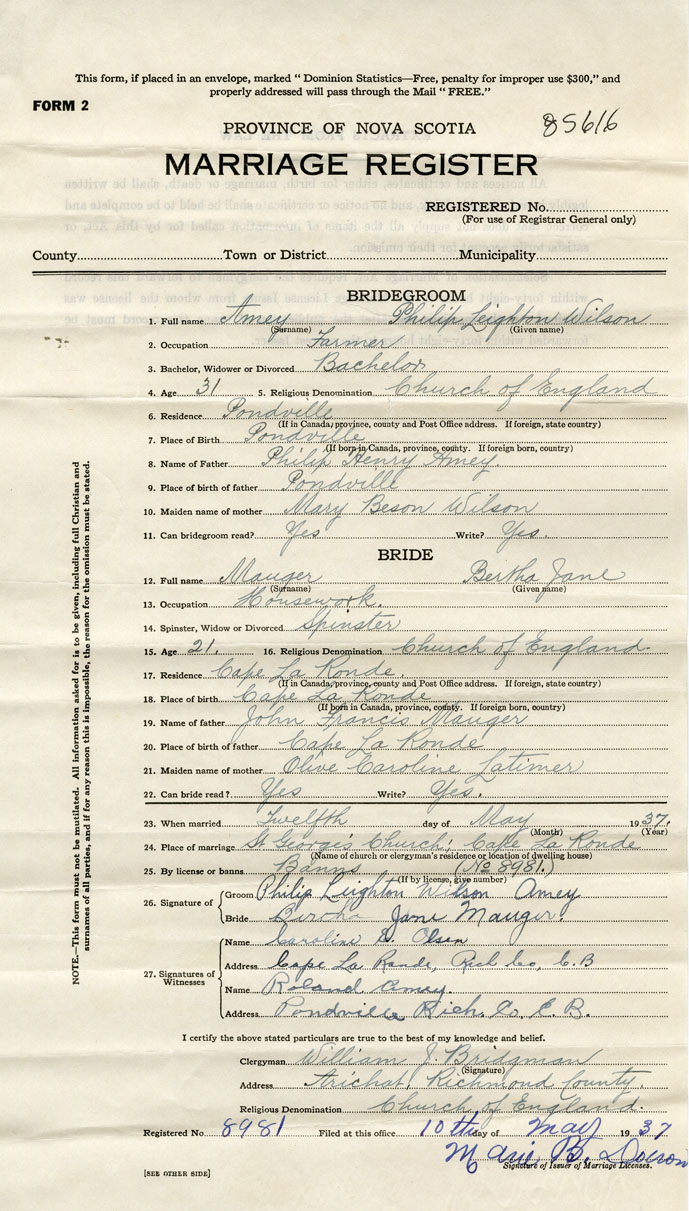 This form, if placed in an envelope, marked “ Dominion Statistics—Free, penalty for improper use $300,” and
properly addressed will pass through the Mail “ FREE.”
FORM 2
85616
PROVINCE OF NOVA SCOTIA
MARRIAGE REGISTER
REGISTERED No.
(For use of Registrar General only)
County Town or District Municipality
BRIDEGROOM
1. Full name Amey Philip Leighton Wilson
(Surname) (Given name)
2. Occupation Farmer
3. Bachelor, Widower or Divorced Bachelor
4. Age 31 5. Religious Denomination Church of England
6. Residence Pondville
(If in Canada, province, county and Post Office address. If foreign, state country)
7. Place of Birth Pondville
(If born in Canada, province, county. If foreign born, country)
8. Name of Father Philip Henry Amey.
9. Place of birth of father Pondville
10. Maiden name of mother Mary Beson Wilson
11. Can bridegroom read? Yes Write? Yes.
BRIDE
12. Full name Mauger Bertha Jane
(Surname) (Given name)
13. Occupation Housework.
14. Spinster, Widow or Divorced Spinster
15. Age 21. 16. Religious Denomination Church of England
17. Residence Cape La Ronde.
(If in Canada, province, county and Post Office address. If foreign, state country)
18. Place of birth Cape La Ronde
(If born in Canada, province, county. If foreign born, country)
19. Name of father John Francis Mauger
20. Place of birth of father Cape La Ronde
21. Maiden name of mother Olive Caroline Latimer
22. Can bride read? Yes Write? Yes.
23. When married Twelfth day of May 1937.
(Month) (Year)
24. Place of marriage St George's Church, Cape La Ronde
(Name of church or clergyman's residence or location of dwelling house)
25. By license or banns Banns (No 8981.)
(If by license, give number)
26. Signature of
Groom Philip Leighton Wilson Amey
Bride Bertha Jane Mauger.
27. Signatures of Witnesses
Name Caroline D. Olsen
Address Cape La Ronde, Rich Co, C.B
Name Roland Amey.
Address Pondville Rich. Co. C. B.
I certify the above stated particulars are true to the best of my knowledge and belief.
Clergyman William J. Bridgman
(Signature)
Address Arichat, Richmond County,
Religious Denomination Church of England.
Registered No. 8981 Filed at this office 10th day of May 1937
Marie B. Doiron
Signature of Issuer of Marriage Licenses.
[SEE OTHER SIDE]
NOTE.—This form must not be mutilated. All information asked for is to be given, including full Christian and
surnames of all parties, and if for any reason this is impossible, the reason for the omission must be stated.